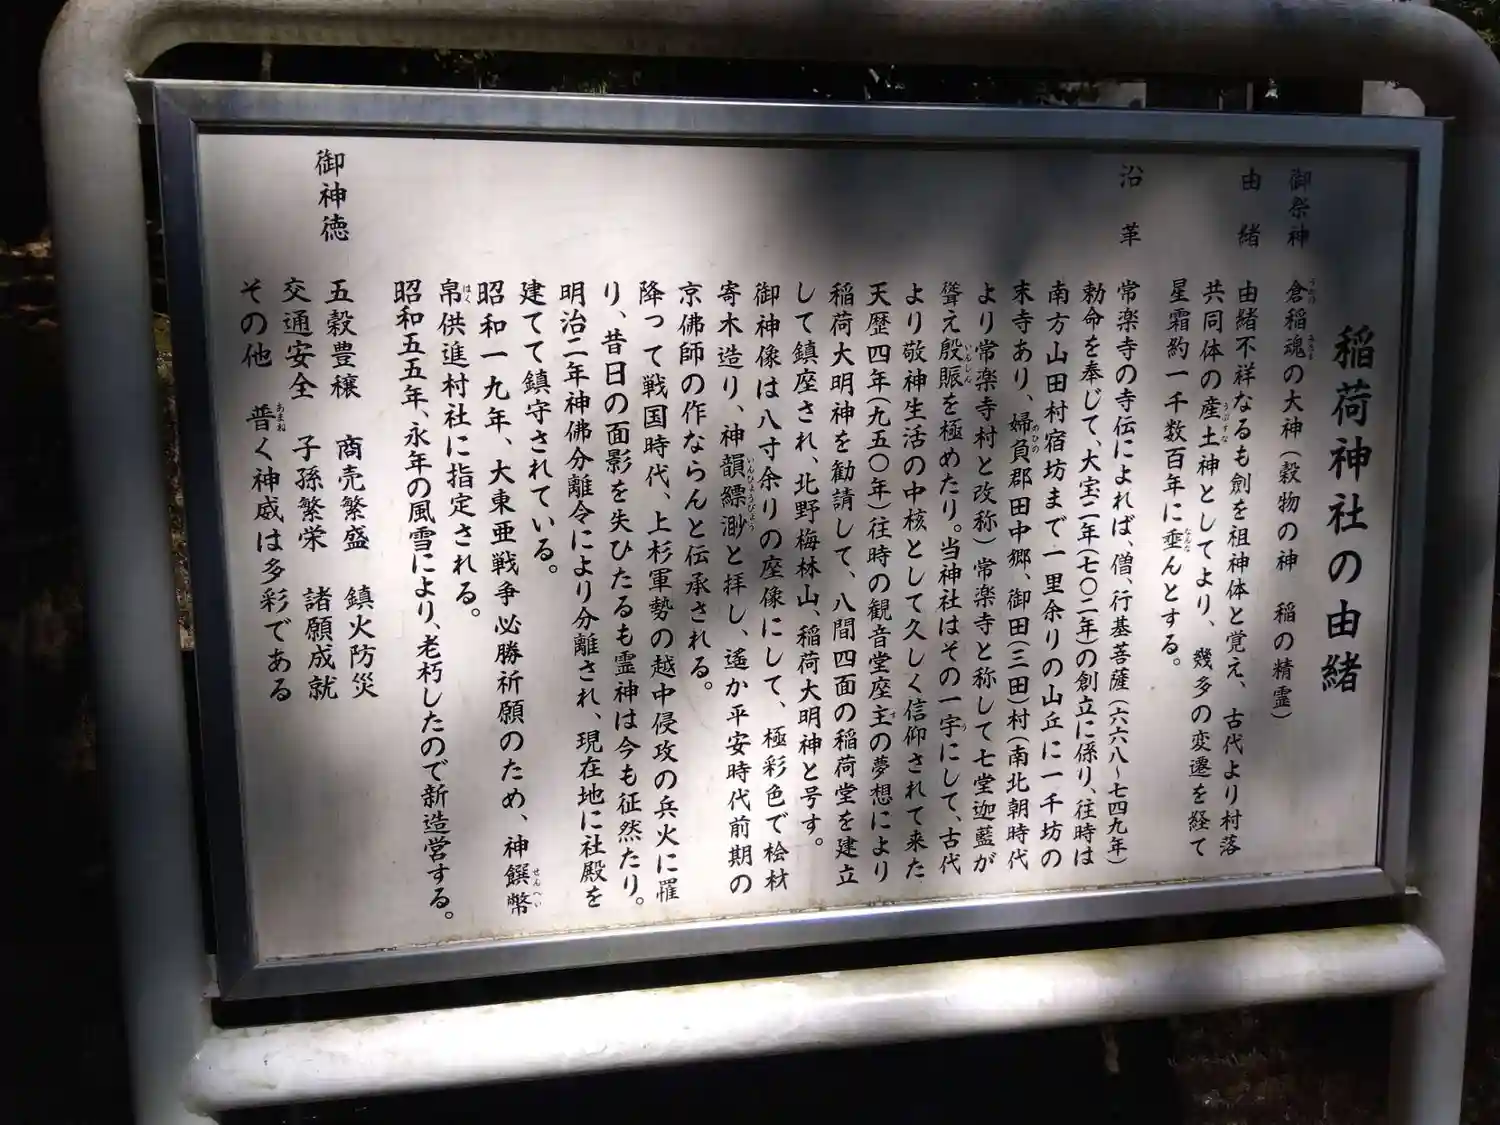 稲荷神社の由緒
御祭神　倉稲魂の大神（穀物の神　稲の精霊）
由緒　由緒不祥なるも劍を祖神体と覚え、古代より村落
共同体の産土神としてより、幾多の変遷を経て
星霜約一千数百年に垂んとする。
沿革　常楽寺の寺伝によれば、僧、行基菩薩（六六八～七四九年）
勅命を奉じて、大宝二年（七〇二年）の創立に係り、往時は
南方山田村宿坊まで一里余りの山丘に一千坊の
末寺あり、婦負郡田中郷、御田（三田）村（南北朝時代
より常楽寺村と改称）常楽寺と称して七堂迦藍が
聳え殷賑を極めたり。当神社はその一宇にして、古代
より敬神生活の中核として久しく信仰されて来た
天歴四年（九五〇年）往時の観音堂座主の夢想により
稲荷大明神を勧請して、八間四面の稲荷堂を建立
して鎮座され、北野梅林山、稲荷大明神と号す。
御神像は八寸余りの座像にして、極彩色で桧材
寄木造り、神韻縹渺と拝し、遙か平安時代前期の
京佛師の作ならんと伝承される。
降って戦国時代、上杉軍勢の越中侵攻の兵火に罹
り、昔日の面影を失ひたるも霊神は今も征然たり。
明治二年神佛分離令により分離され、現在地に社殿を
建てて鎮守されている。
昭和一九年、大東亜戦争必勝祈願のため、神饌幣
帛供進村社に指定される。
昭和五五年、永年の風雪により、老朽したので新造営する。
御神徳　五穀豊穣　商売繁盛　鎮火防災
交通安全　子孫繁栄　諸願成就
その他　普く神威は多彩である